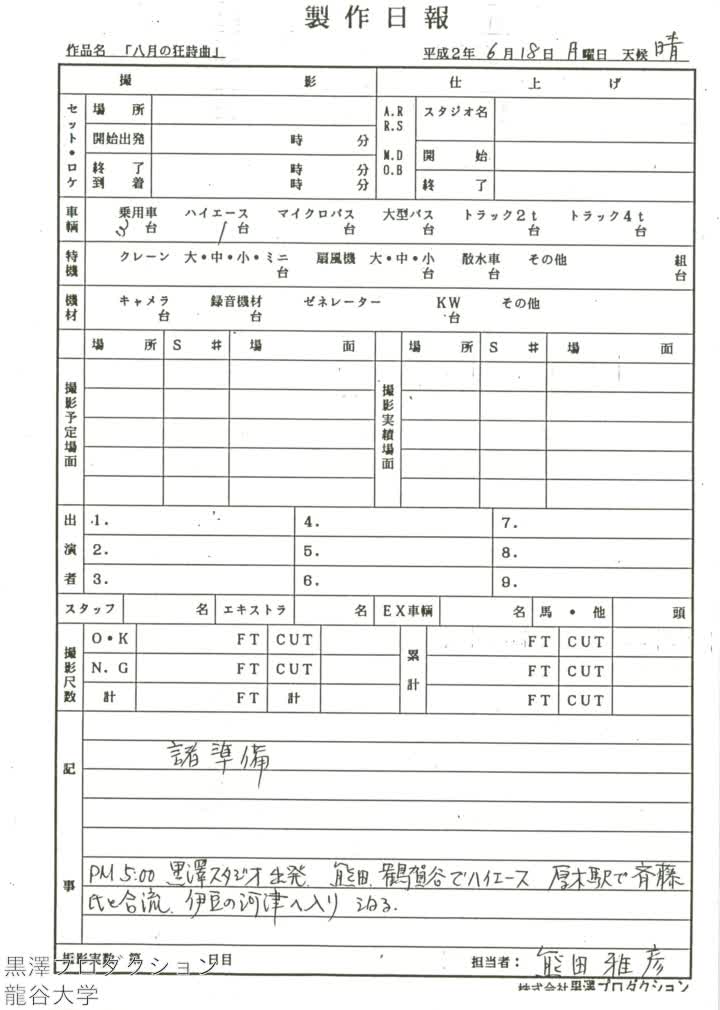 製作日報
作品名 「八月の狂詩曲」 平成2年 6月18日 月曜日 天候 晴
撮 影 仕 上 げ
セット・ロケ 場 所 A.R R.S M.D O.B スタジオ名
開始出発 時 分 開 始
終 了 時 分 終 了
到 着 時 分
車輌 乗用車 ハイエース マイクロバス 大型バス トラック2t トラック4t
台 1台 台 台 台 台
特機 クレーン 大・中・小・ミニ 扇風機 大・中・小 散水車 その他 組
台 台 台 台
機材 キャメラ 録音機材 ゼネレーター KW その他
台 台 台
場 所 S # 場 面 場 所 S # 場 面
撮影予定場面 撮影実績場面
出演者 1. 4. 7.
2. 5. 8.
3. 6. 9.
スタッフ 名 エキストラ 名 EX車輌 名 馬・他 頭
撮影尺数 O・K FT CUT 累計 FT CUT
N.G FT CUT FT CUT
計 FT 計 FT CUT
記事
諸準備
PM 5:00 黒澤スタジオ出発 熊田、鶴賀谷でハイエース 厚木駅で斉藤
氏と合流、伊豆の河津へ入り 泊る.
撮影実数 第 日目 担当者: 熊田雅彦
株式会社黒澤プロダクション
黒澤プロダクション
龍谷大学